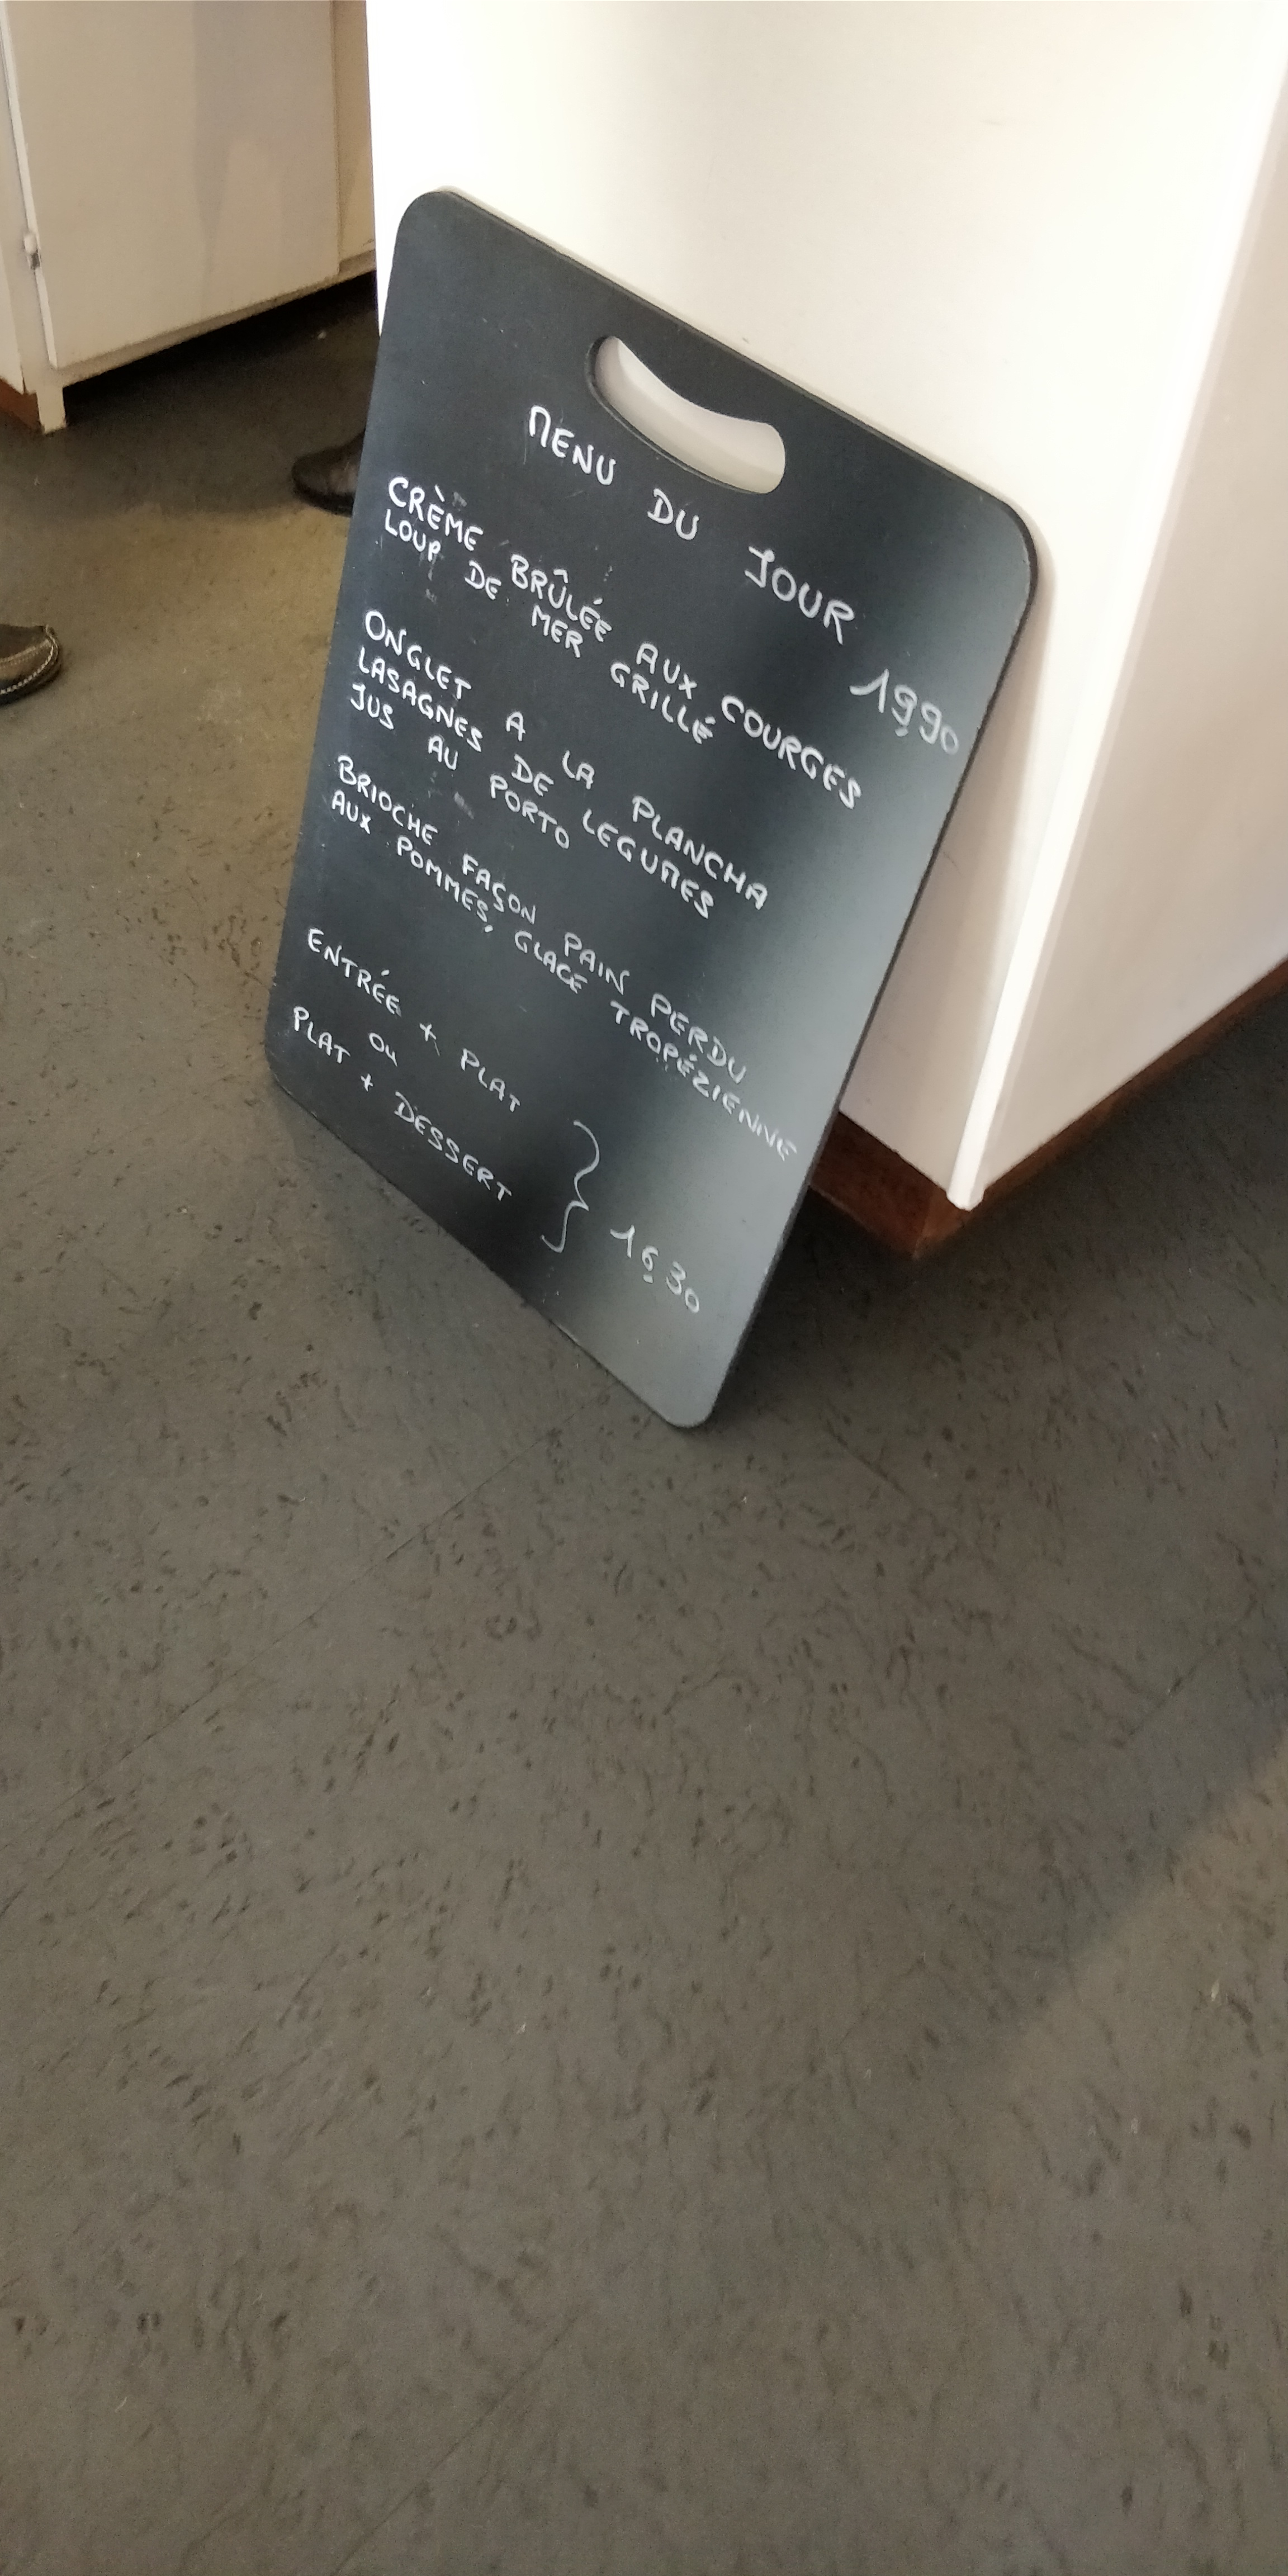 MENU DU JOUR 19,90
CRÈME BRÛLÉE AUX COURGES
LOUP DE MER GRILLÉ
ONGLET A LA PLANCHA
LASAGNES DE LEGUMES
JUS AU PORTO
BRIOCHE FAÇON PAIN PERDU
AUX POMMES, GLACE TROPÉZIENNE
ENTRÉE + PLAT
OU
PLAT + DESSERT } 16,30